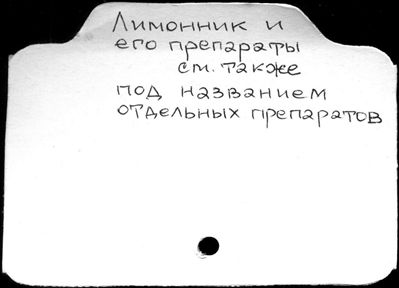 Лимонник и
его препараты
см. также
под названием
отдельных препаратов